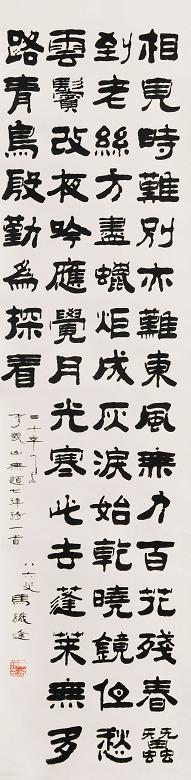 相見時難別亦難東風無力百花殘春蠶
到老絲方盡蠟炬成灰淚始乾曉鏡但愁
雲鬢改夜吟應覺月光寒此去蓬萊無多
路青鳥殷勤為探看
李義山無題七律詩一首
八六叟 馬識途